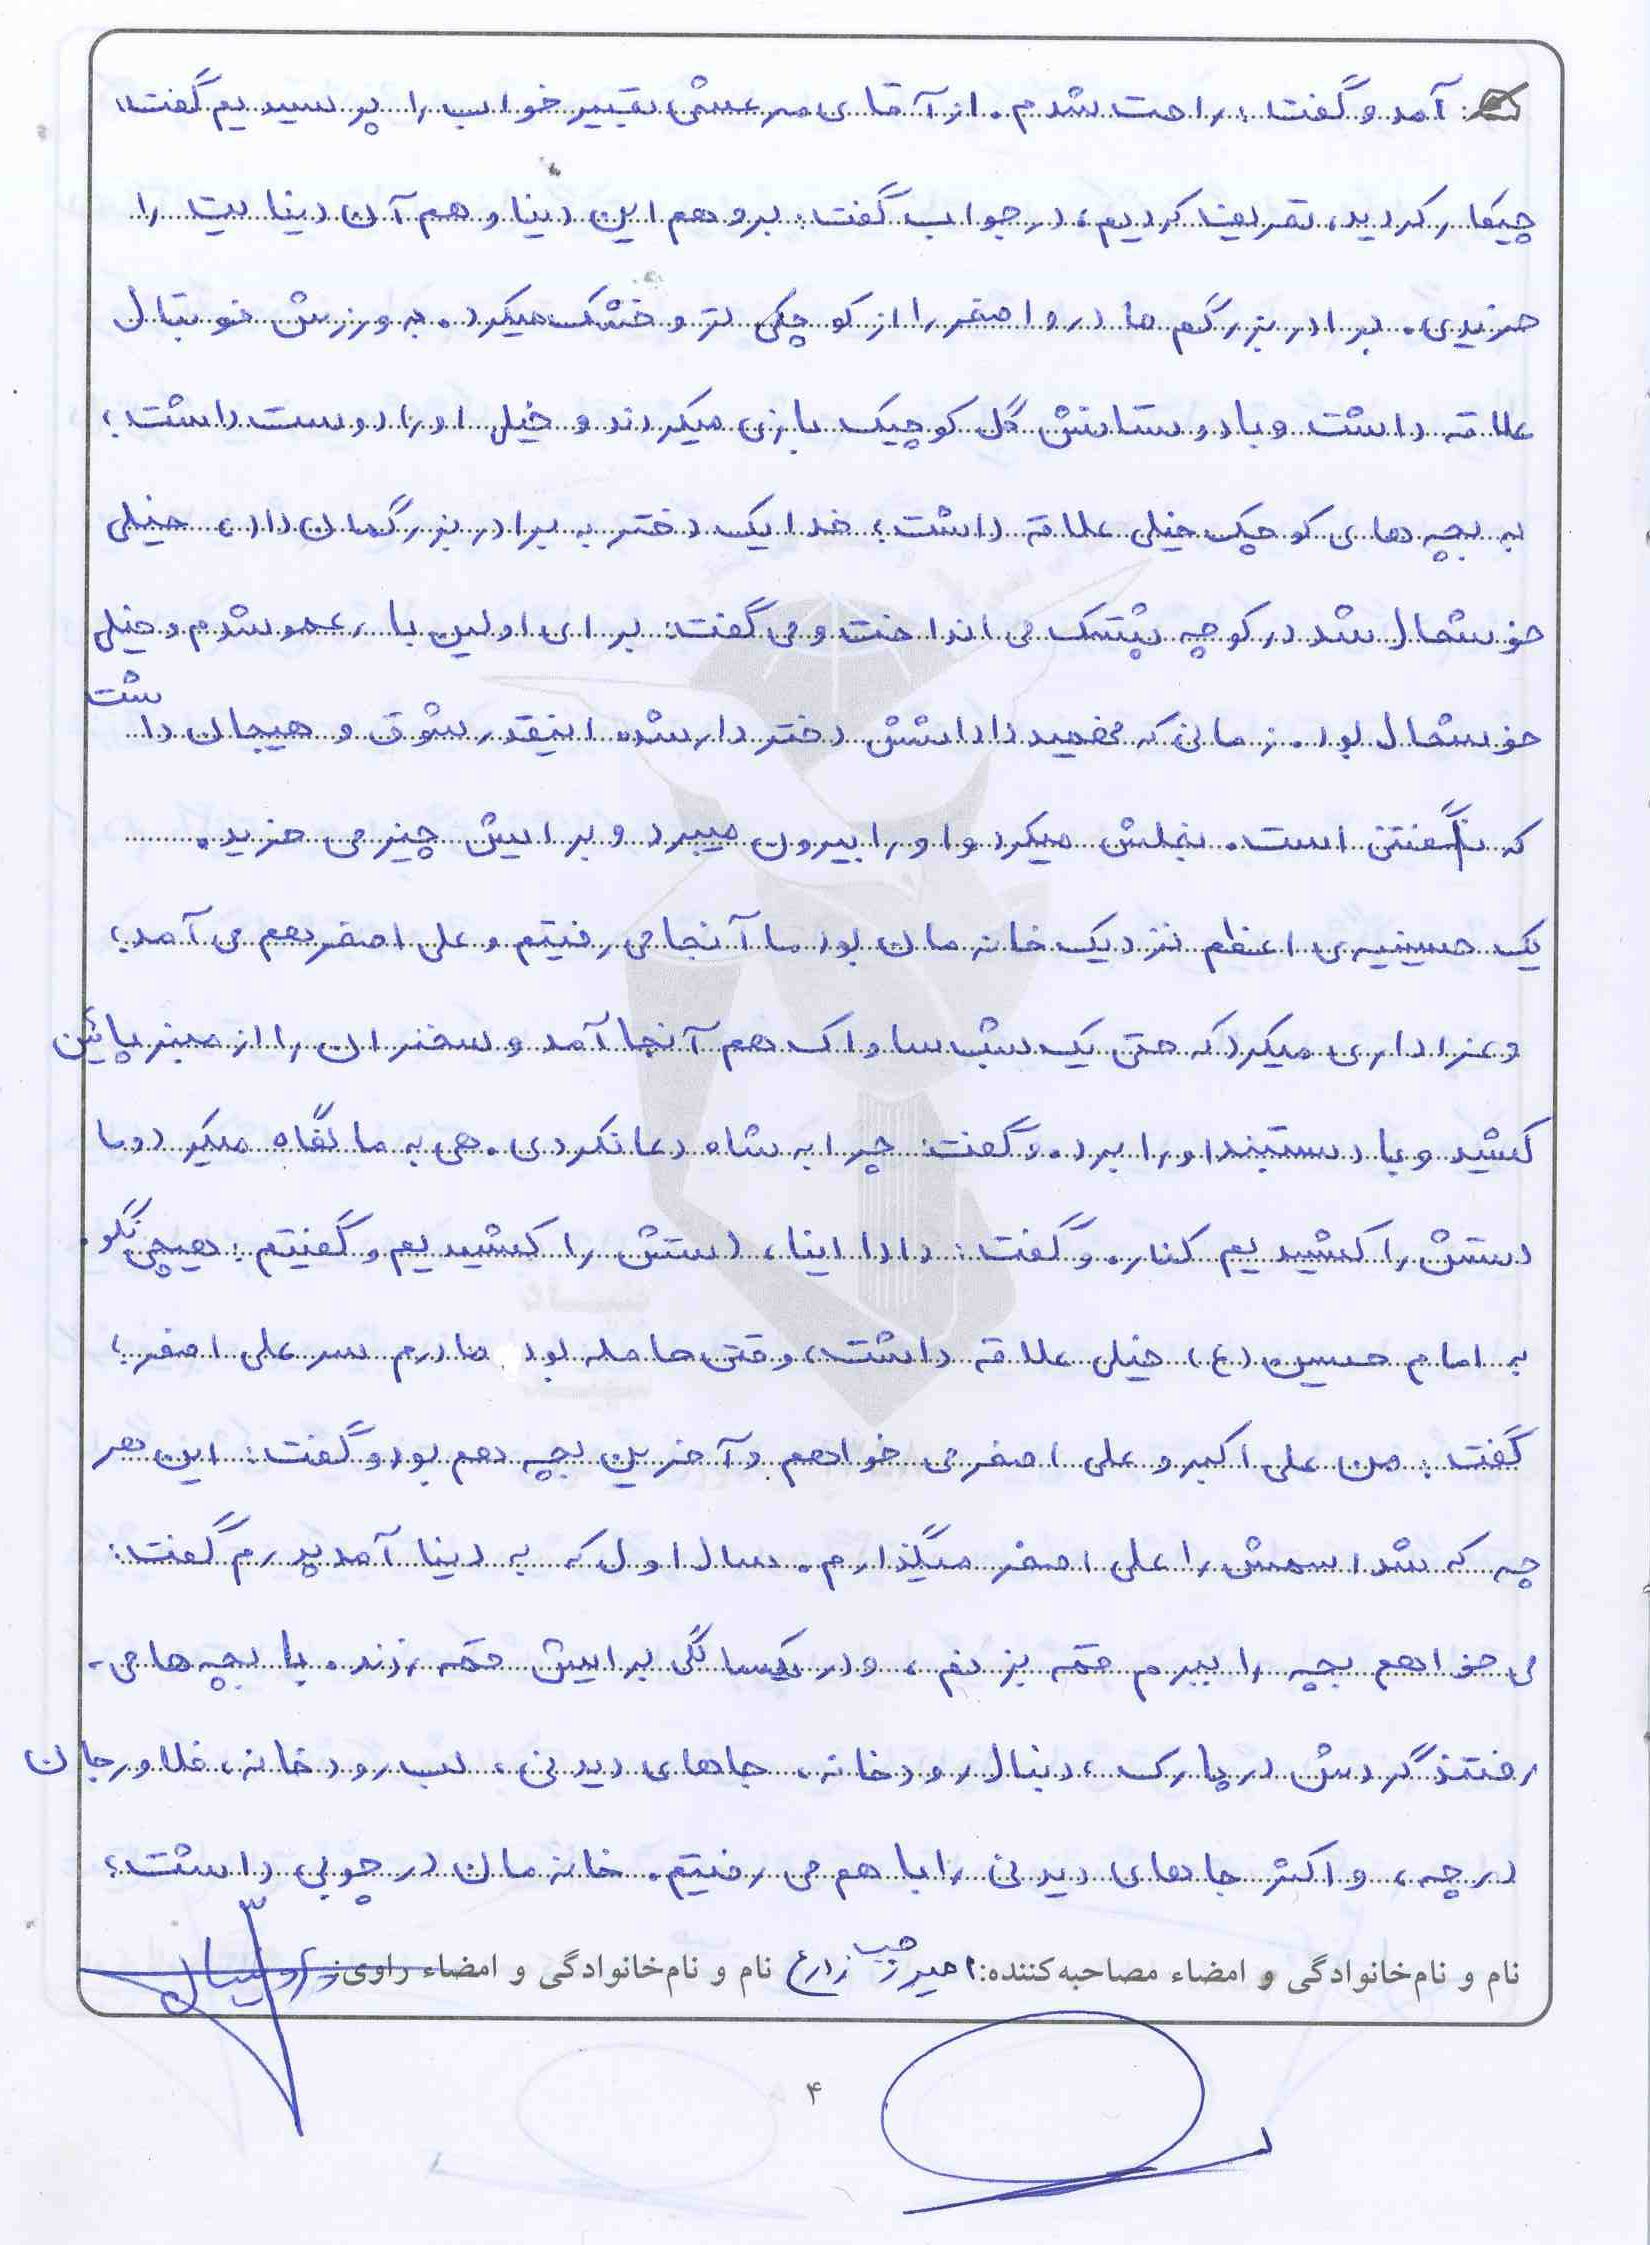 آمد و گفت: راحت شدم. از آقای مرعشی تعبیر خواب را پرسیدیم گفت:
چیکار کردید، تعریف کردیم، در جواب گفت: برو هم این دنیا و هم آن دنیایت را
خریدی. برادر بزرگم مادر و اصغر را از کوچکی تر و خشک میکرد. به ورزش فوتبال
علاقه داشت و با دوستانش گل کوچیک بازی میکردند و خیلی او را دوست داشت؛
به بچه های کوچک خیلی علاقه داشت؛ خدا یک دختر به برادر بزرگمان داد، خیلی
خوشحال شد در کوچه پشتک می انداخت و می گفت: برای اولین بار عمو شدم و خیلی
خوشحال بود. زمانی که فهمید داداشش دختر دار شده اینقدر شوق و هیجان داشت
که نگفتنی است. بغلش میکرد و او را بیرون میبرد و برایش چیز می خرید.
یک حسینیه ی اعظم نزدیک خانه مان بود ما آنجا می رفتیم و علی اصغر هم می آمد؛
و عزاداری میکرد که حتی یک شب ساواک هم آنجا آمد و سخنران را از منبر پائین
کشید و با دستبند او را برد. و گفت: چرا به شاه دعا نکردی. هی به ما نگاه میکرد و ما
دستش را کشیدیم کنار. و گفت: دادا اینا، دستش را کشیدیم و گفتیم: هیچی نگو.
به امام حسین (ع) خیلی علاقه داشت، وقتی حامله بود مادرم سر علی اصغر؛
گفت: من علی اکبر و علی اصغر می خواهم و آخرین بچه هم بود و گفت: این هر
چه که شد اسمش را علی اصغر میگذارم. سال اول که به دنیا آمد پدرم گفت:
می خواهم بچه را ببرم قمه بزنم، و در یکسالگی برایش قمه زدند. با بچه ها می-
رفتند گردش در پارک، دنبال رودخانه، جاهای دیدنی، لب رودخانه، فلاورجان
درچه، و اکثر جاهای دیدنی را با هم می رفتیم. خانه مان در چوبی داشت؛
نام و نام‌خانوادگی و امضاء مصاحبه‌کننده: امیر رجب زارع نام و نام‌خانوادگی و امضاء راوی:
۴